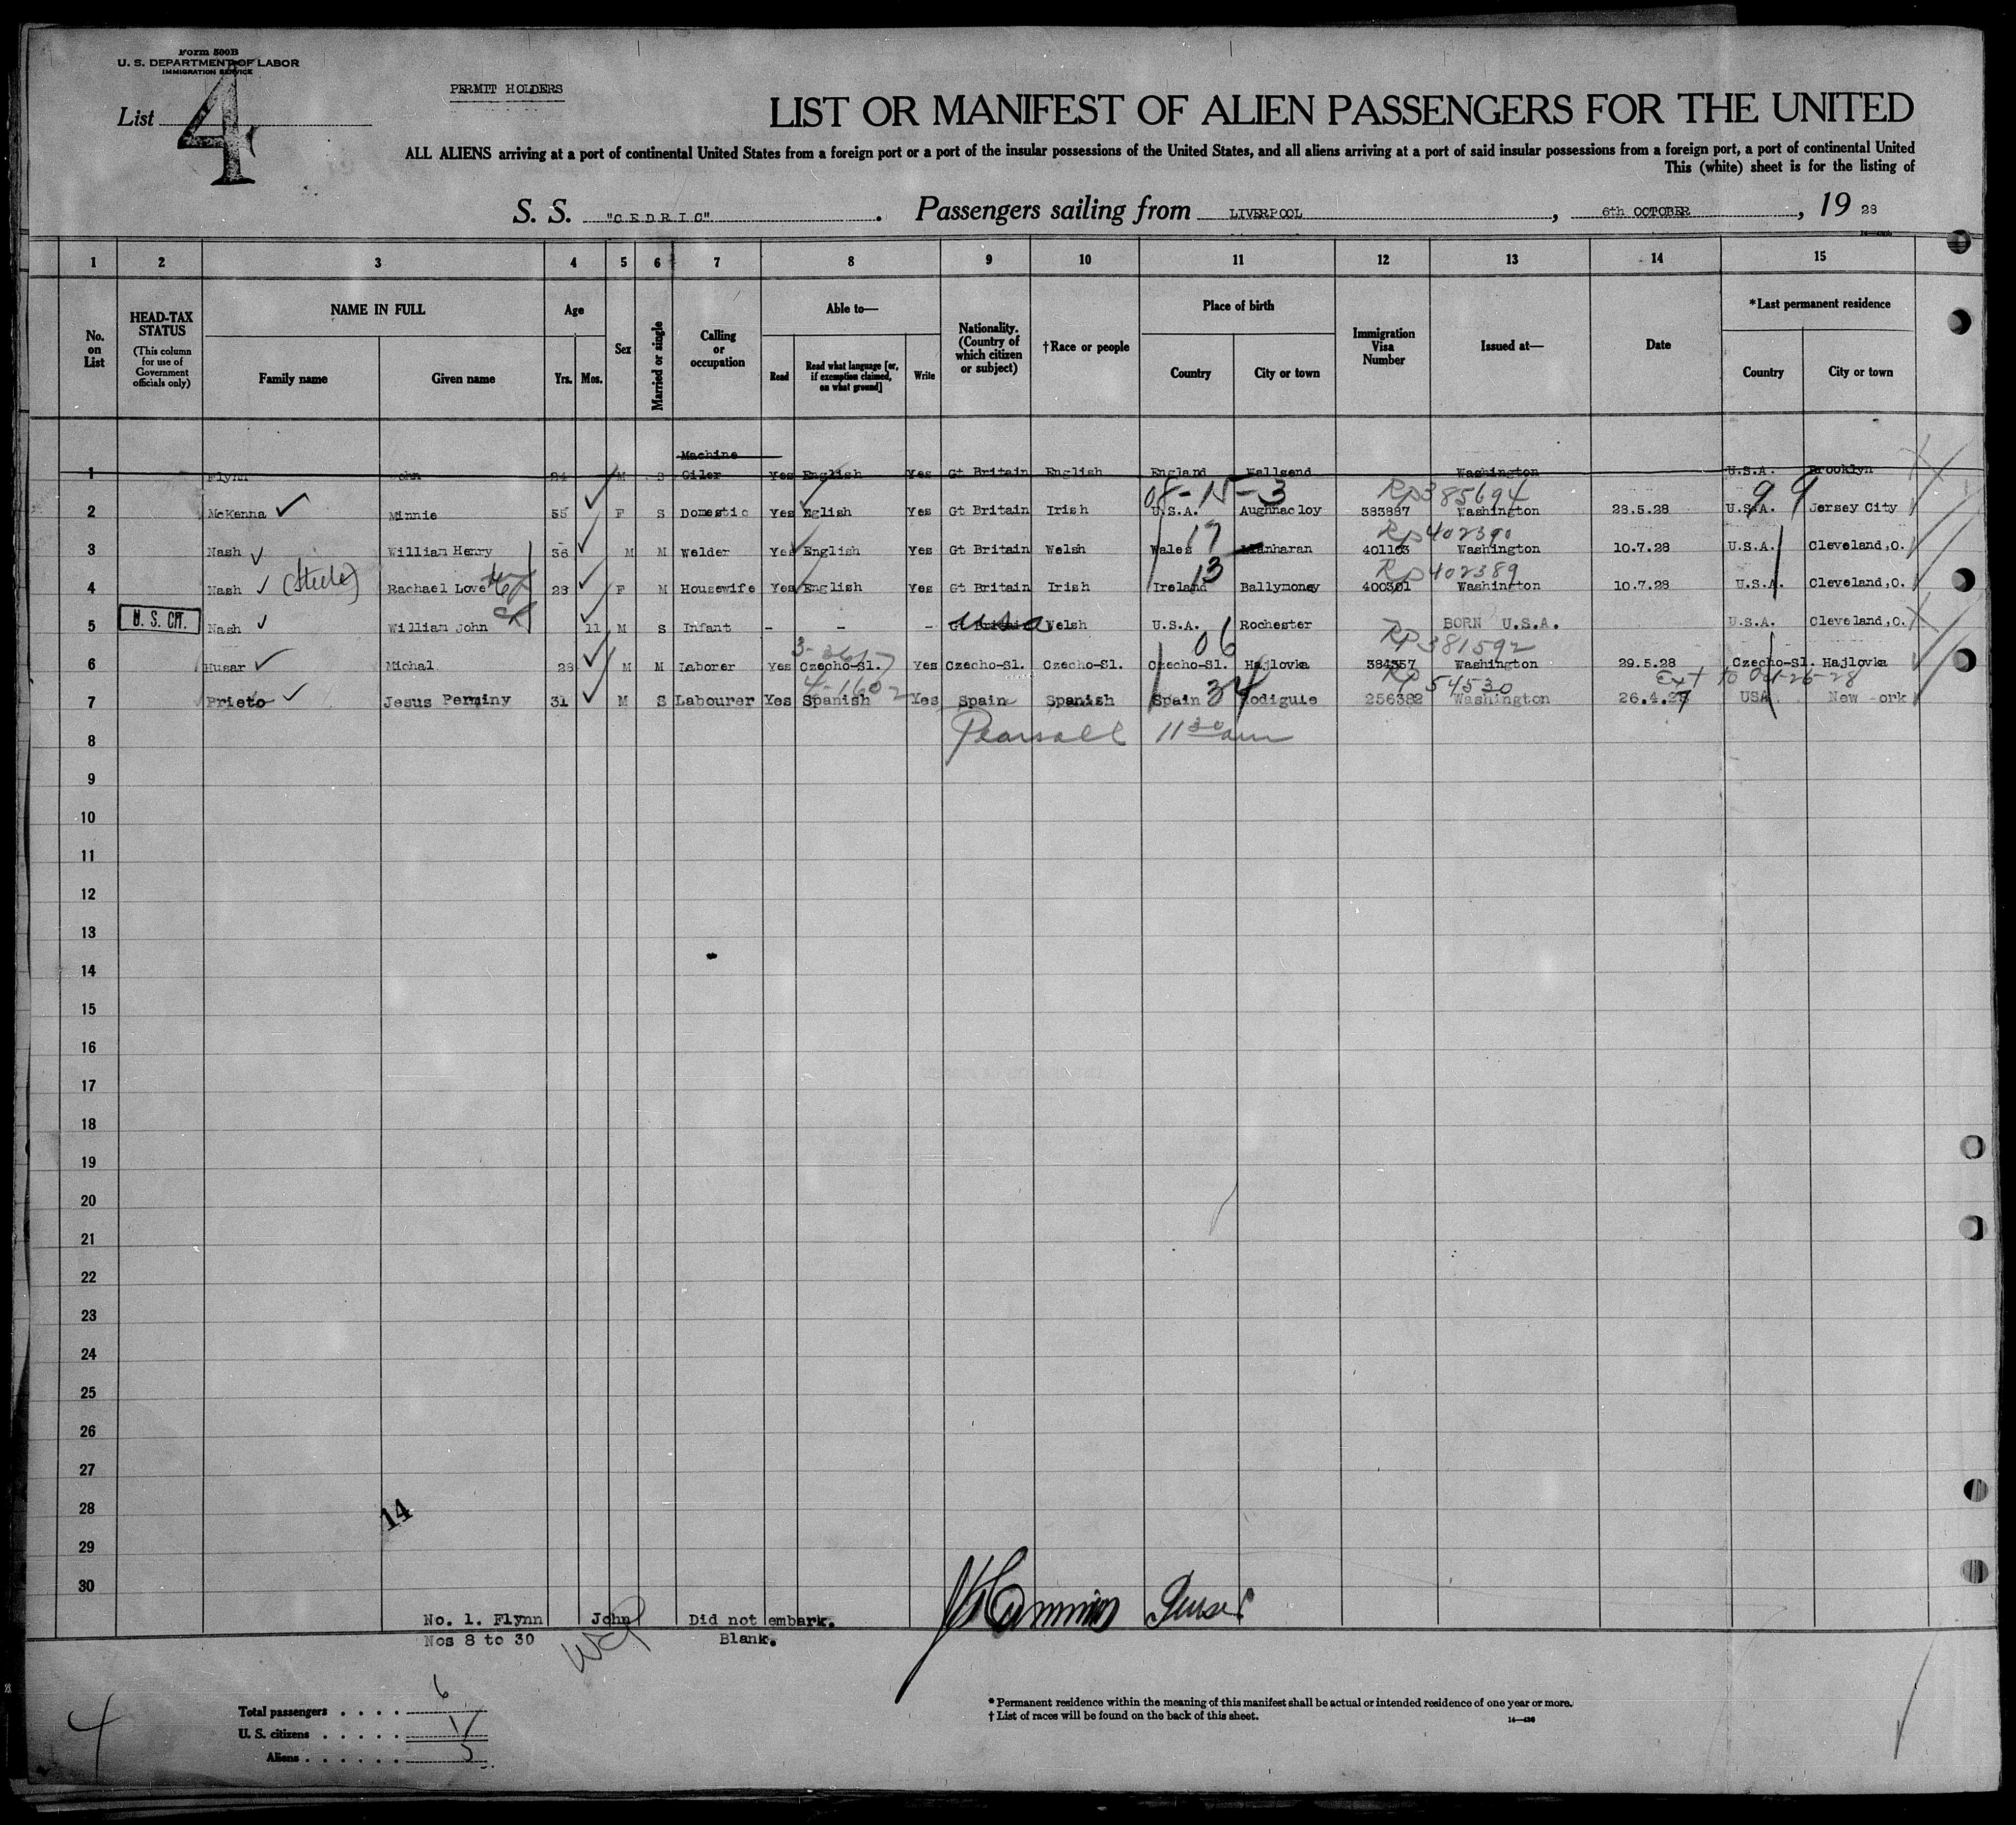 Form 500B
U. S. DEPARTMENT OF LABOR
IMMIGRATION SERVICE
List 4
PERMIT HOLDERS
LIST OR MANIFEST OF ALIEN PASSENGERS FOR THE UNITED
ALL ALIENS arriving at a port of continental United States from a foreign port or a port of the insular possessions of the United States, and all aliens arriving at a port of said insular possessions from a foreign port, a port of continental United
This (white) sheet is for the listing of
S. S. "CEDRIC". Passengers sailing from LIVERPOOL, 6th OCTOBER, 19 28
1 2 3 4 5 6 7 8 9 10 11 12 13 14 15
No. on List
HEAD-TAX STATUS
(This column for use of Government officials only)
NAME IN FULL
Family name Given name
Age
Yrs. Mos.
Sex
Married or single
Calling or occupation
Able to—
Read Read what language [or, if exemption claimed, on what ground] Write
Nationality. (Country of which citizen or subject)
†Race or people
Place of birth
Country City or town
Immigration Visa Number
Issued at—
Date
*Last permanent residence
Country City or town
Machine
1 Flynn John 24 M S Oiler Yes English Yes Gt Britain English England Wallsend Washington U.S.A. Brooklyn
08-15-3 RP385694 99
2 McKenna Minnie 55 F S Domestic Yes Eglish Yes Gt Britain Irish U.S.A. Aughnacloy 383887 Washington 28.5.28 U.S.A. Jersey City
17 RP402390
3 Nash William Henry 36 M M Welder Yes English Yes Gt Britain Welsh Wales Llanharan 401163 Washington 10.7.28 U.S.A. Cleveland,O.
13 RP402389
4 Nash (Steele) Rachael Love 28 F M Housewife Yes English Yes Gt Britain Irish Ireland Ballymoney 400301 Washington 10.7.28 U.S.A. Cleveland,O.
5 U. S. CIT. Nash William John 11 M S Infant - - - Gt Britain USA Welsh U.S.A. Rochester BORN U.S.A. U.S.A. Cleveland,O.
06 RP381592
6 Husar Michal 28 M M Laborer Yes Czecho-Sl. Yes Czecho-Sl. Czecho-Sl. Czecho-Sl. Hajlovka 384357 Washington 29.5.28 Czecho-Sl. Hajlovka
4-1602 RP 54530 Ext to Oct-26-28
7 Prieto Jesus Perminy 31 M S Labourer Yes Spanish Yes Spain Spanish Spain 34 Rodiguie 256382 Washington 26.4.27 USA New ork
8 Pearsall 11 30 am
9
10
11
12
13
14
15
16
17
18
19
20
21
22
23
24
25
26
27
28
14
29
30
No. 1. Flynn John Did not embark.
Nos 8 to 30 Blank.
Purser
Total passengers . . . . 6
U. S. citizens . . . . . 1
Aliens . . . . . . 5
4
*Permanent residence within the meaning of this manifest shall be actual or intended residence of one year or more.
†List of races will be found on the back of this sheet.